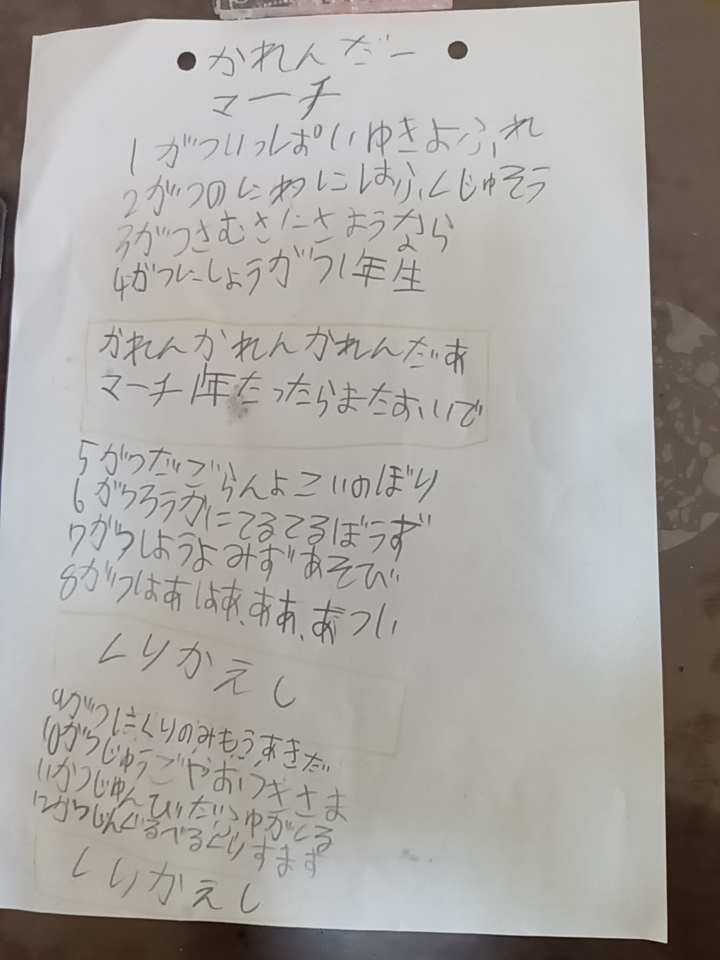 かれんだー
マーチ
1がついっぱいゆきよふれ
2がつのにわにはふくじゅそう
3がつさむさにさようなら
4がつにしょうがつ1年生
かれんかれんかれんだあ
マーチ1年たったらまたおいで
5がつだごらんよこいのぼり
6がつろうかにてるてるぼうず
7がつしようよみずあそび
8がつはあはあ、ああ、あつい
くりかえし
9がつにくりのみもうあきだ
10がつじゅうごやおつきさま
11がつじゅんびだふゆがくる
12がつじんぐるべるくりすます
くりかえし